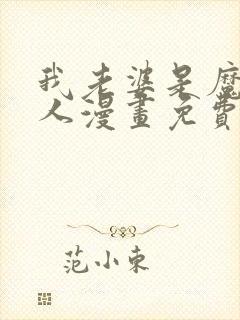 我老婆是魔
人漫畫免費
范小東